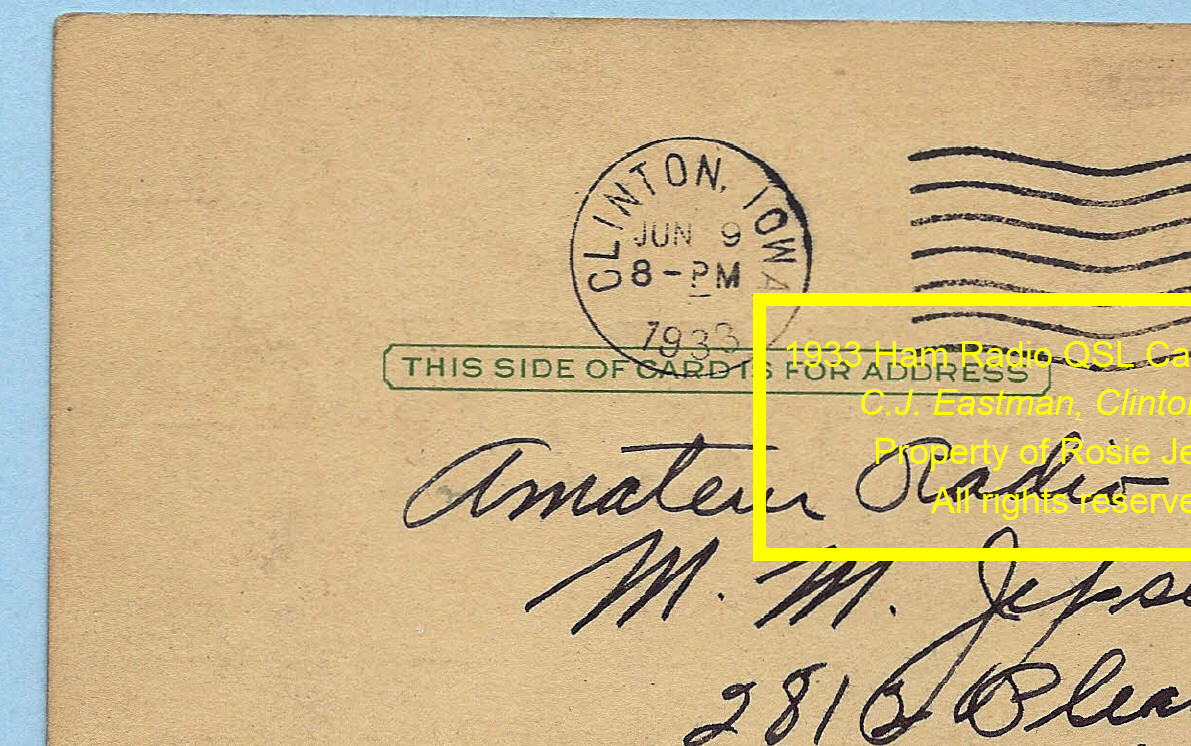 CLINTON, IOWA
JUN 9
8-PM
1933
THIS SIDE OF CARD IS FOR ADDRESS
1933 Ham Radio QSL Ca
C.J. Eastman, Clinton
Property of Rosie Je
All rights reserve
Amateur Radio
M. M. Jepse
2813 Plea